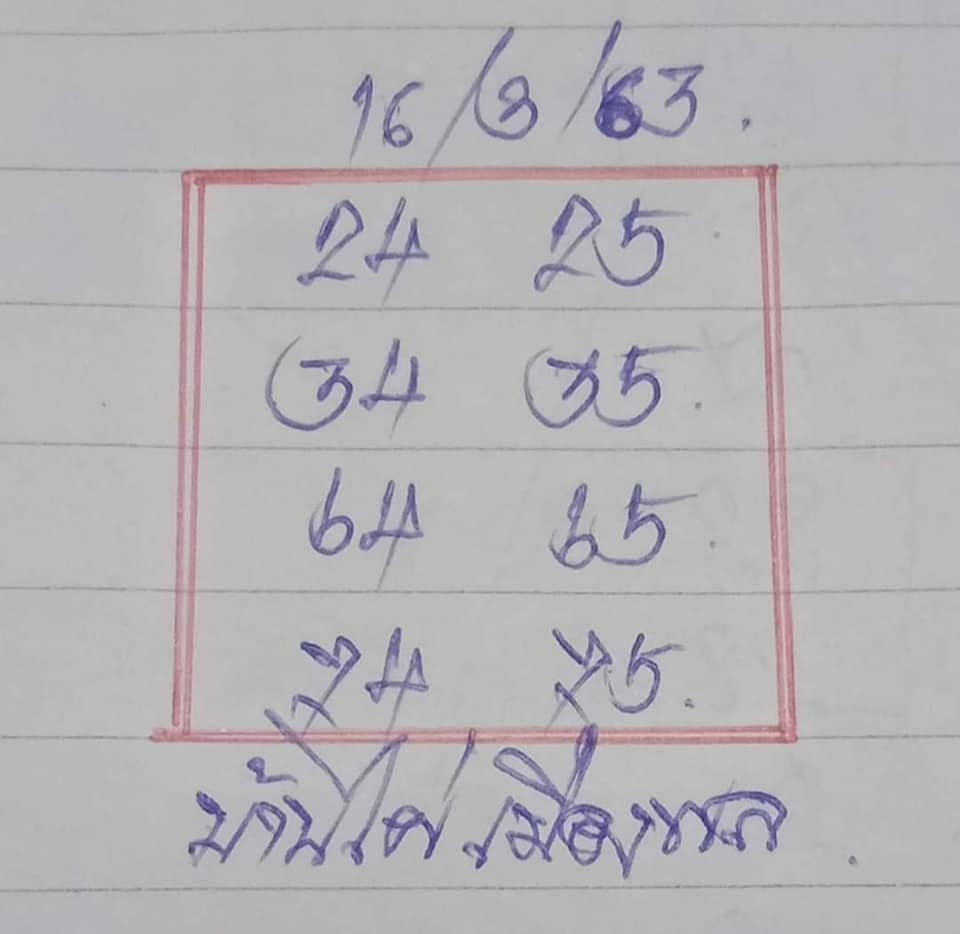 16/3/63.
24 25
34 35.
64 65.
74 75.
บ้านไผ่เมืองพล.